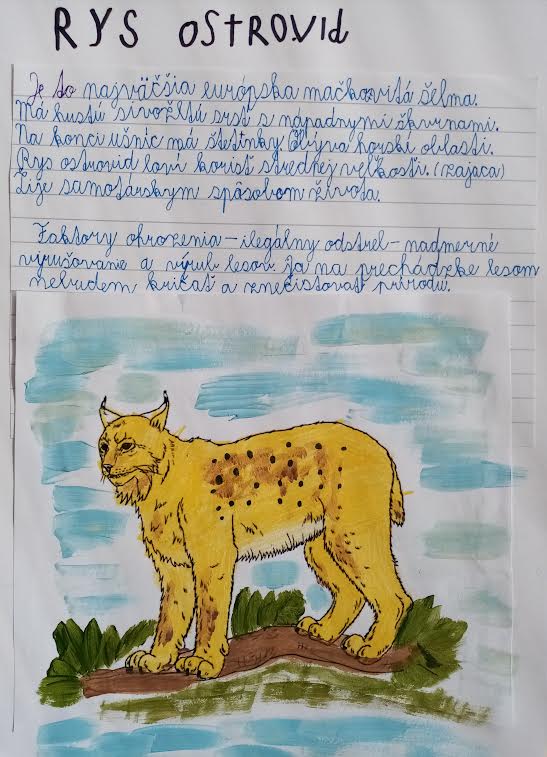 RYS OSTROVID
Je to najväčšia európska mačkovitá šelma.
Má hustú sivožltú srsť s nápadnými škvrnami.
Na konci ušníc má štetinky Obýva horskí oblasti.
Rys ostrovid loví korisť strednej veľkosti. (zajaca)
Žije samotárskym spôsobom života.
Faktory ohrozenia – ilegálny odstrel – nadmerné
vyrušovanie a výrub lesov. Ja na prechádzke lesom
nebudem kričať a znečistovať prírodu.